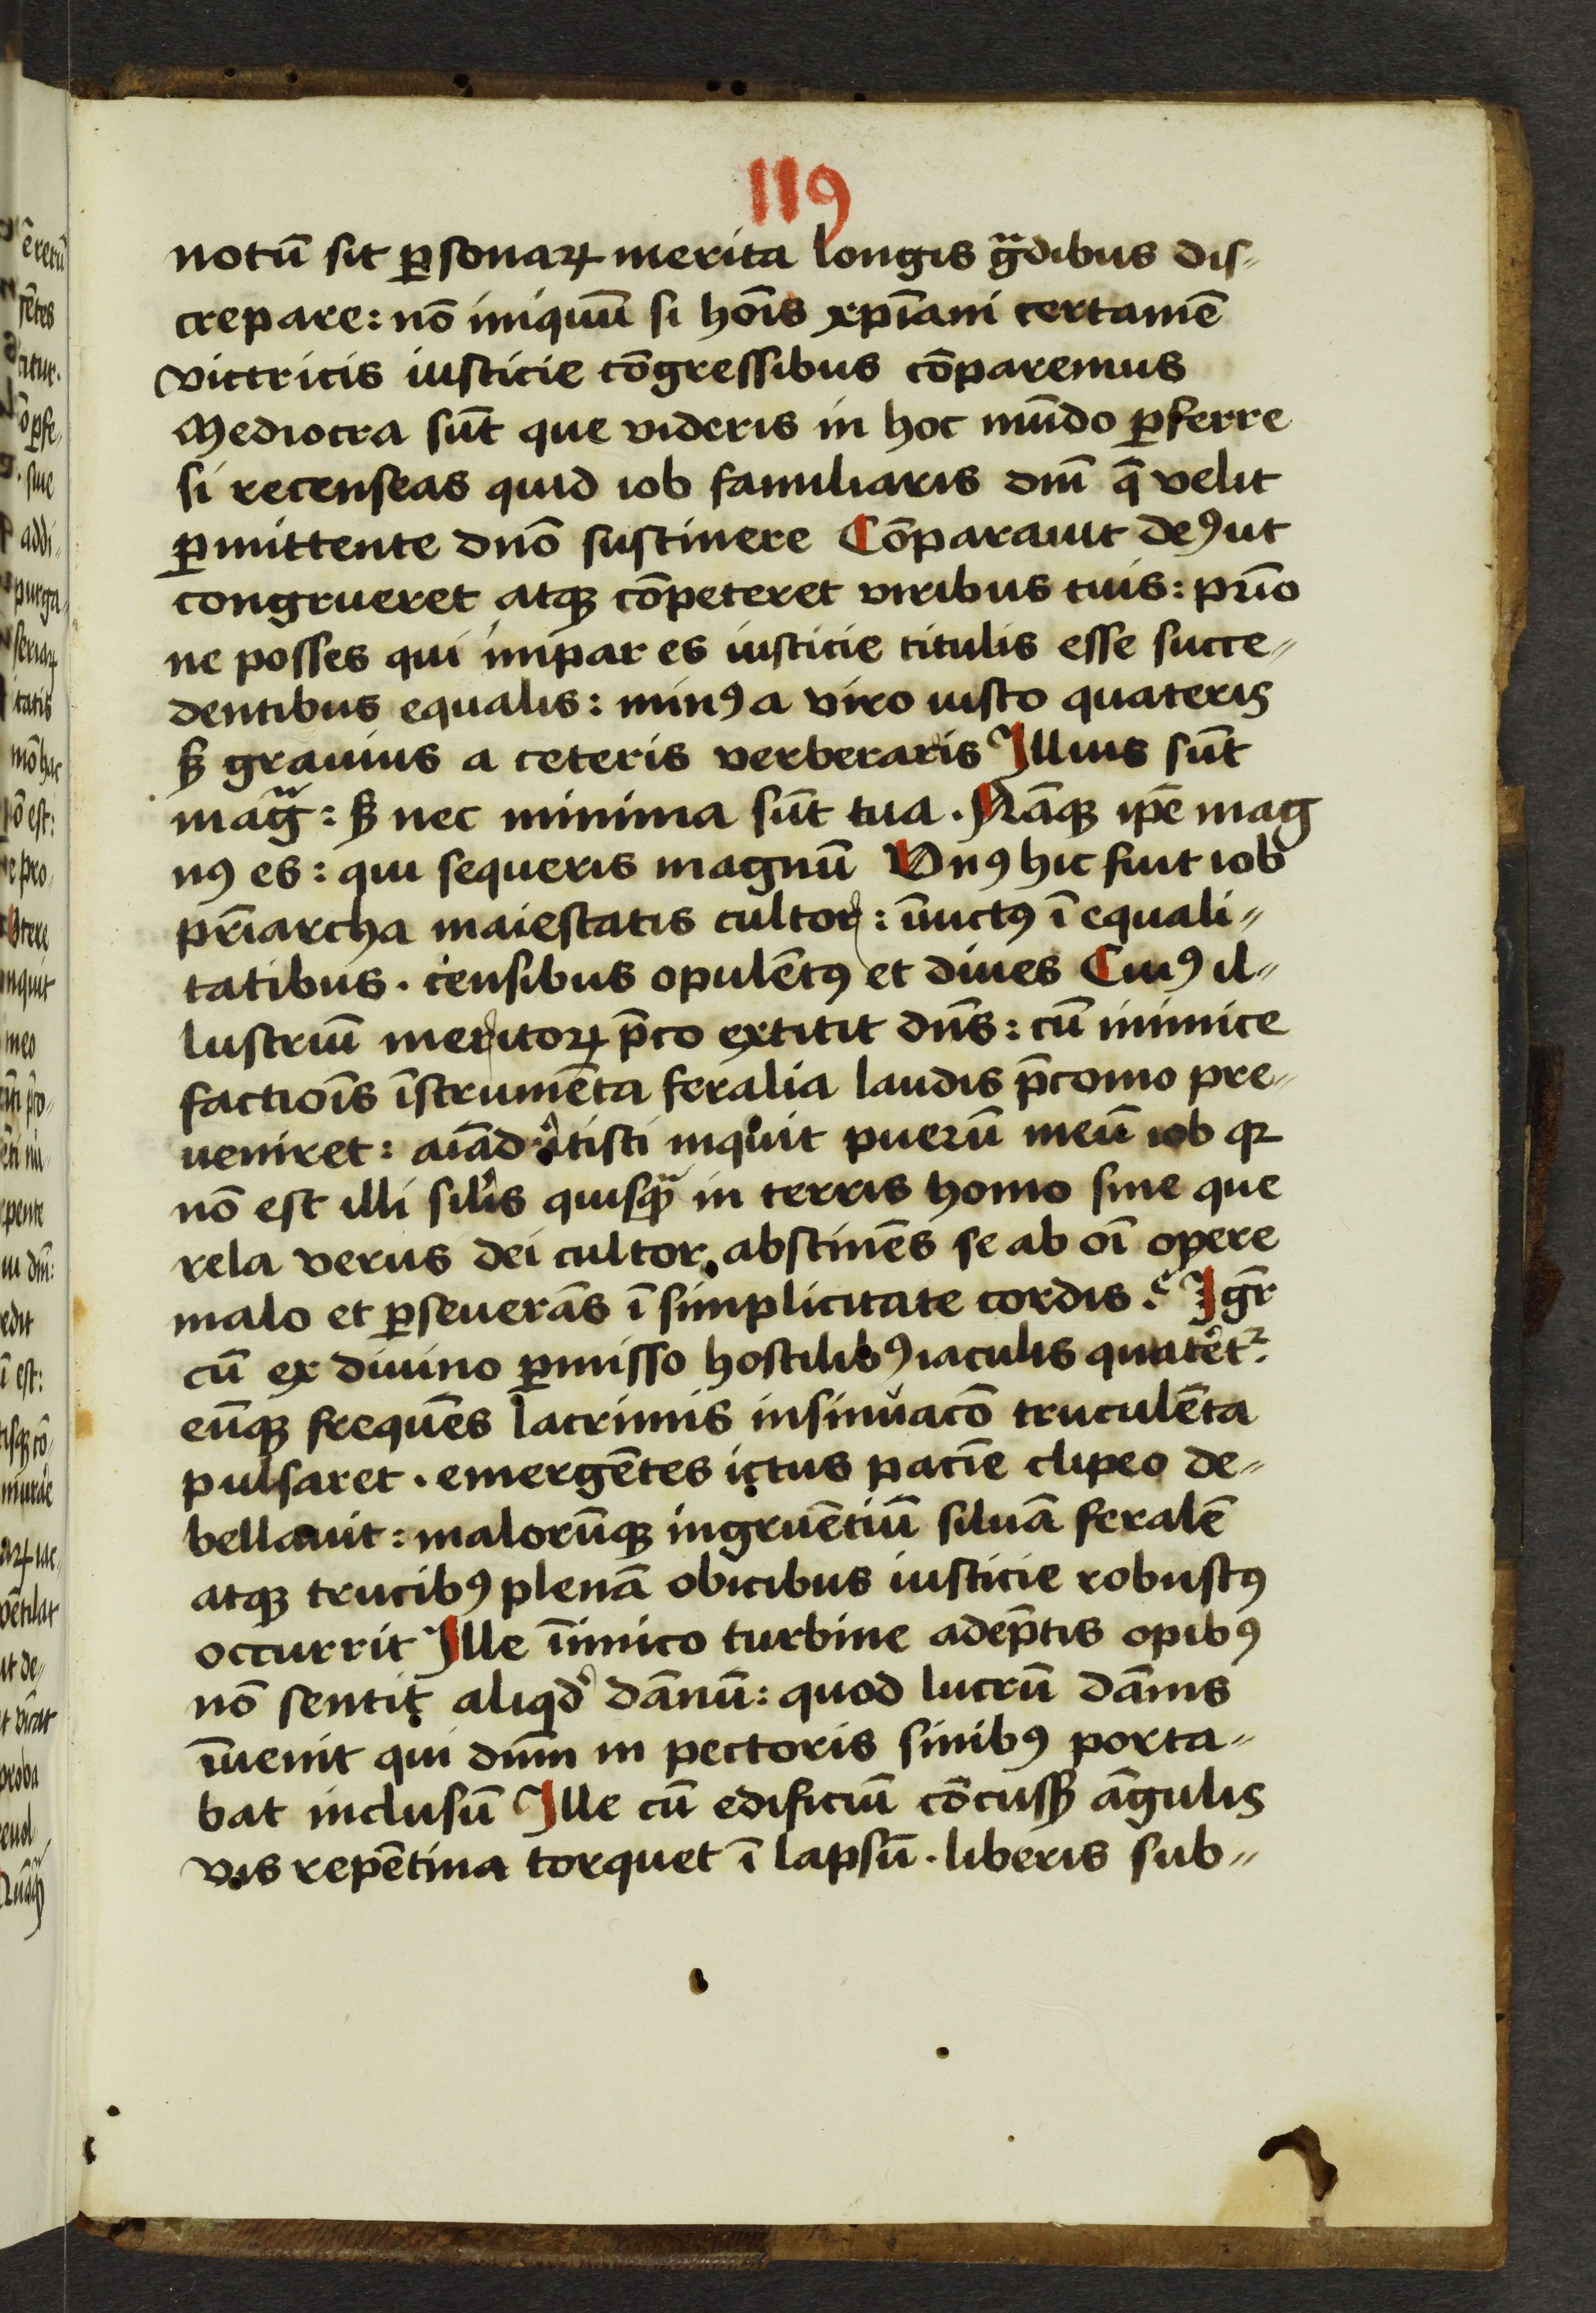 119
notū sit ꝑsonaꝝ merita longis gͣdibus dis⸗
crepare: nō iniquū si hoīs xp̄iani certamē
victricis iusticie cōgressibus cōparemus
Mediocra sūt que videris in hoc mūdo ꝑferre
si recenseas quid iob familiaris dn̄i q̄ velit
ꝑmittente dn̄o sustinere Cōparauit deꝰ ut
congrueret atqꝫ cōpeteret viribus tuis: pr̄io
ne posses qui impar es iusticie titulis esse succe⸗
dentibus equalis: minꝰ a viro iusto quateris
sꝫ grauius a ceteris verberaris Illius sūt
magͣ: sꝫ nec minima sūt tua. Nāqꝫ ip̄e mag
nꝰ es: qui sequeris magnū Vnꝰ hic fuit iob
pr̄iarcha maiestatis cultor: īuictꝰ ī equali⸗
tatibus. censibus opulētꝰ et diues Cuiꝰ il⸗
lustriū meritoꝝ p̄co extitit dn̄s: cū inimice
factiois̄ īstrumēta feralia laudis p̄conio pre⸗
ueniret: aīaduͥtisti inquit puerū meū iob qꝛ
nō est illi sil̄is quisqͣꝫ in terris homo sine que
rela verus dei cultor. abstinēs se ab oī opere
malo et ꝑseuerās ī simplicitate cordis. Igr̄
cū ex diuino ꝑmisso hostilibꝰ iaculis quatet᷑
eūqꝫ frequēs lacrimis insinuacō truculēta
pulsaret. emergētes ictus pacīe clipeo de⸗
bellauit: malorūqꝫ ingruētiū siluā feralē
atqꝫ trucibꝰ plenā obicibus iusticie robustꝰ
occurrit Ille īimico turbine adep̄tis opibꝰ
nō sentit aliqd̓ dānū: quod lucrū dānis
īuenit qui dn̄m in pectoris sinibꝰ porta⸗
bat inclusū Ille cū edificiū cōcussꝫ āgulis
vis repētina torquet ī lapsū. liberis sub⸗